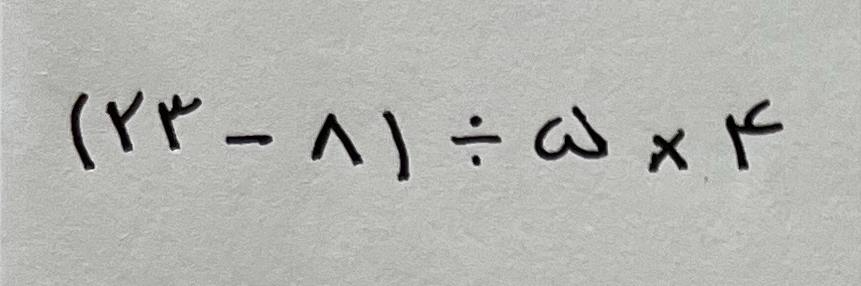 (۲۳ - ۸) ÷ ۵ × ۴